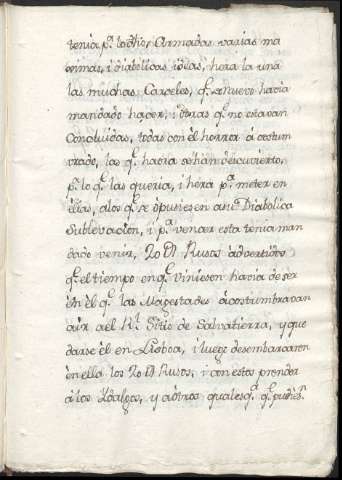 tenia pª. lo dho, Armadas varias ma
ximas, i diabolicas ideas, hera la una
las muchas Carceles, qᵉ. de nuevo havia
mandado hacer, i otras qᵉ. no estavan
Concluidas, todas con èl horror á costum
vrado, las qᵉ. haora se hán descuvierto,
pª. lo qᵉ. las queria, i hera pª. meter en
èllas, a los qᵉ. se opusiesen a su Diabolica
Sublevacion, i pª. vencer esta tenia man
dado venir, 20 D Rusos àdvertidos
qᵉ. el tiempo en qᵉ. viniesen havia de ser
en èl qᵉ. las Magestades àcostumbravan
à ir a el Rˡ. Sitio de Salvatierra, y que
darse èl en Lisboa, i luego desembarcaron
èn ella los 20 D Rusos, i con estos prender
á los Ydalgos, y aòtros qualesqª. qᵉ. pudiesⁿ.